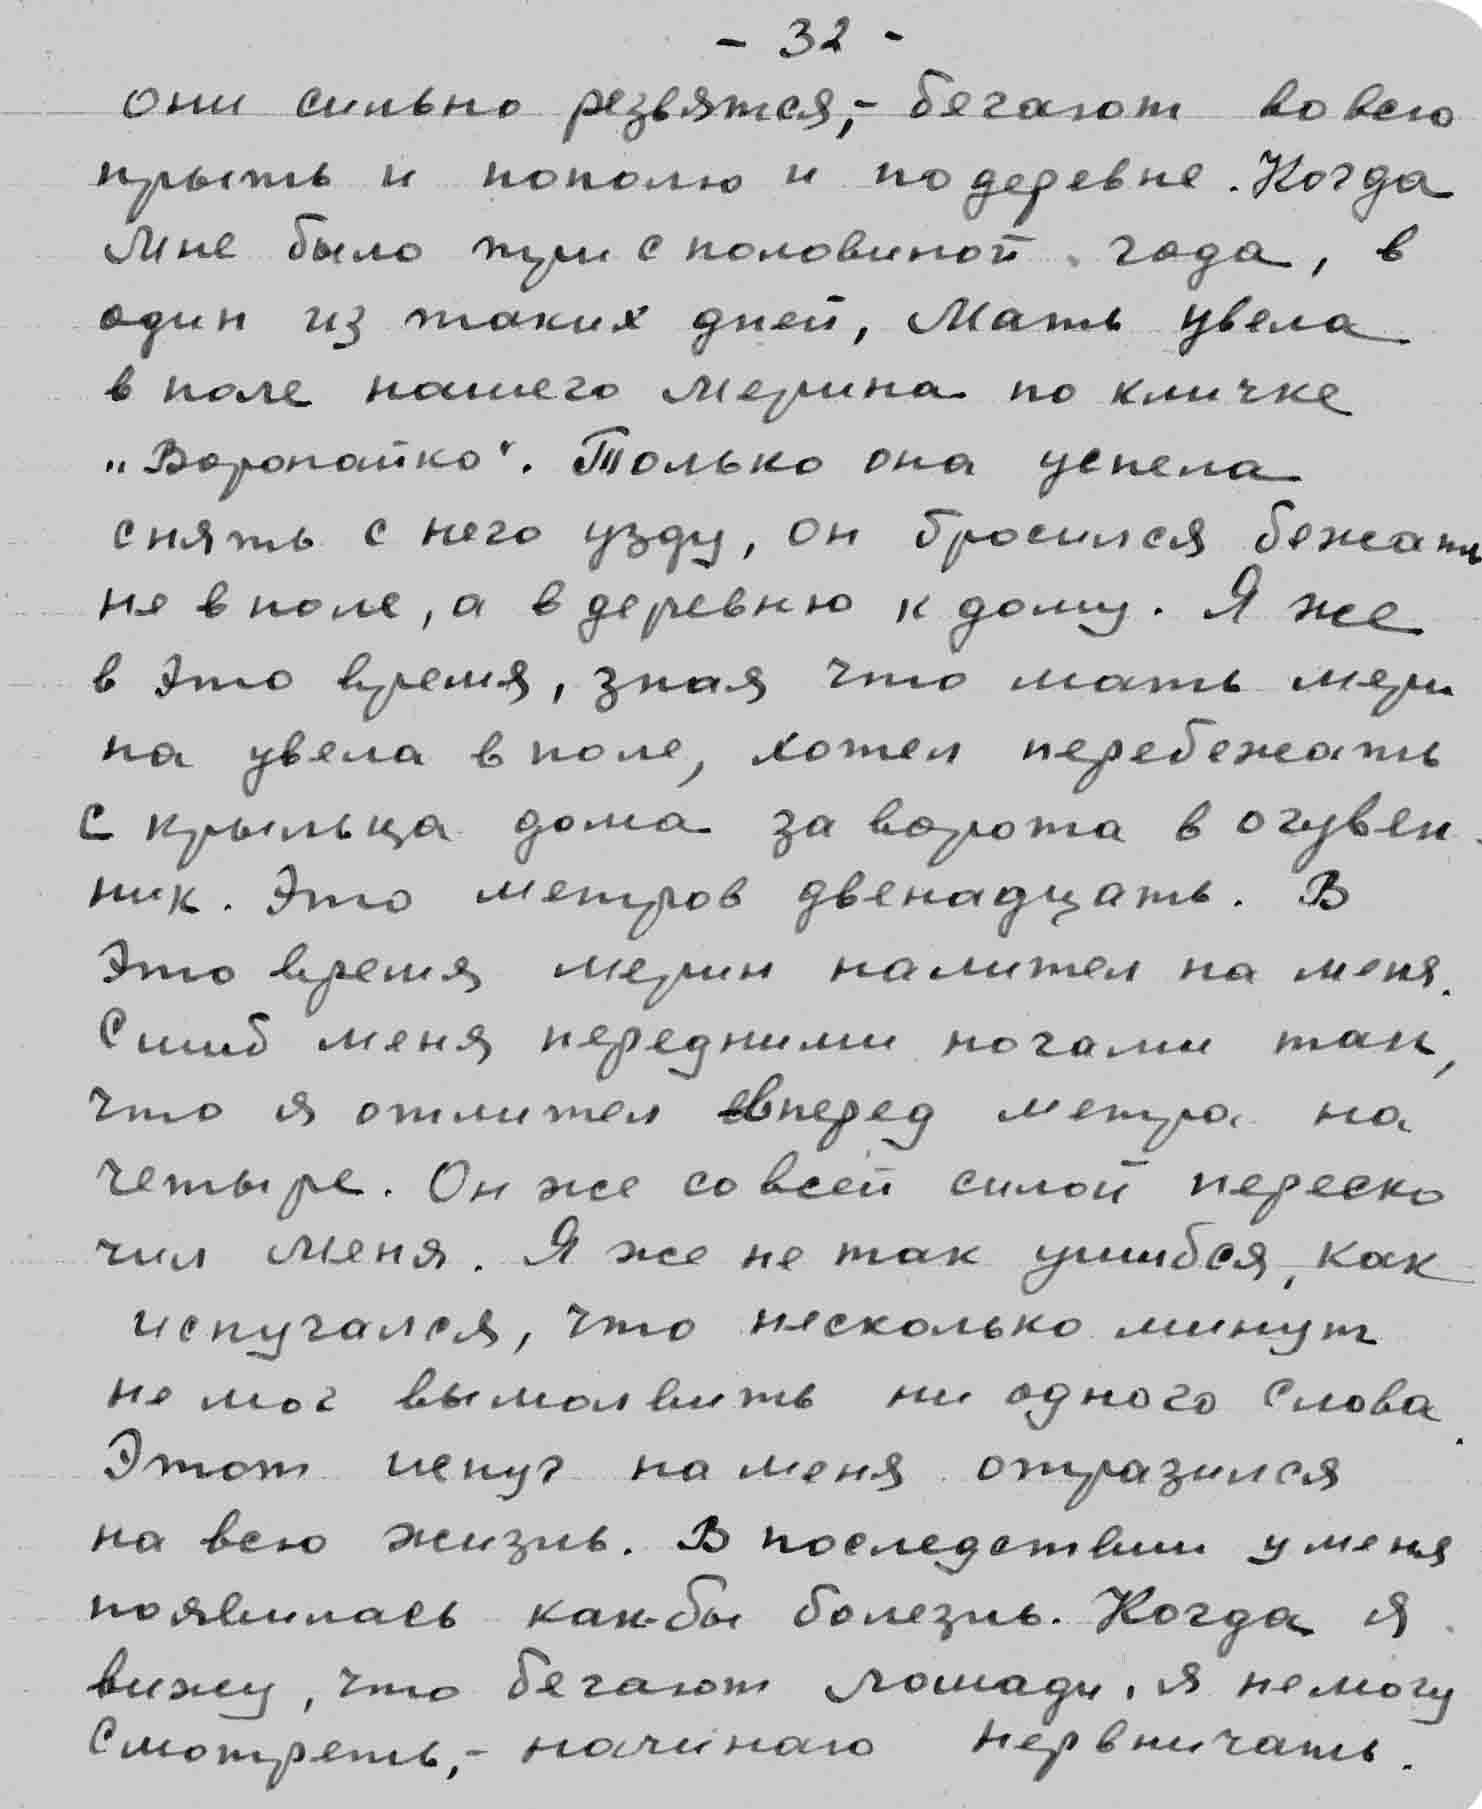 - 32 -
они сильно резвятся,- бегают во всю
прыть и пополю и по деревне. Когда
мне было три с половиной года, в
один из таких дней, мать увела
в поле нашего мерина по кличке
„Воропайко". Только она успела
снять с него узду, он бросился бежать
не в поле, а в деревню к дому. Я же
в это время, зная что мать мери
на увела в поле, хотел перебежать
с крыльца дома за ворота в огувен-
ник. Это метров двенадцать. В
это время мерин налител на меня.
Сшиб меня передними ногами так,
что я отлител вперед метра на
четыре. Он же со всей силой переско
чил меня. Я же не так ушибся, как
испугался, что несколько минут
не мог вымолвить ни одного слова.
Этот испуг на меня отразился
на всю жизнь. В последствии у меня
появилась как-бы болезнь. Когда я
вижу, что бегают лошади, я немогу
смотреть,- начинаю нервничать.